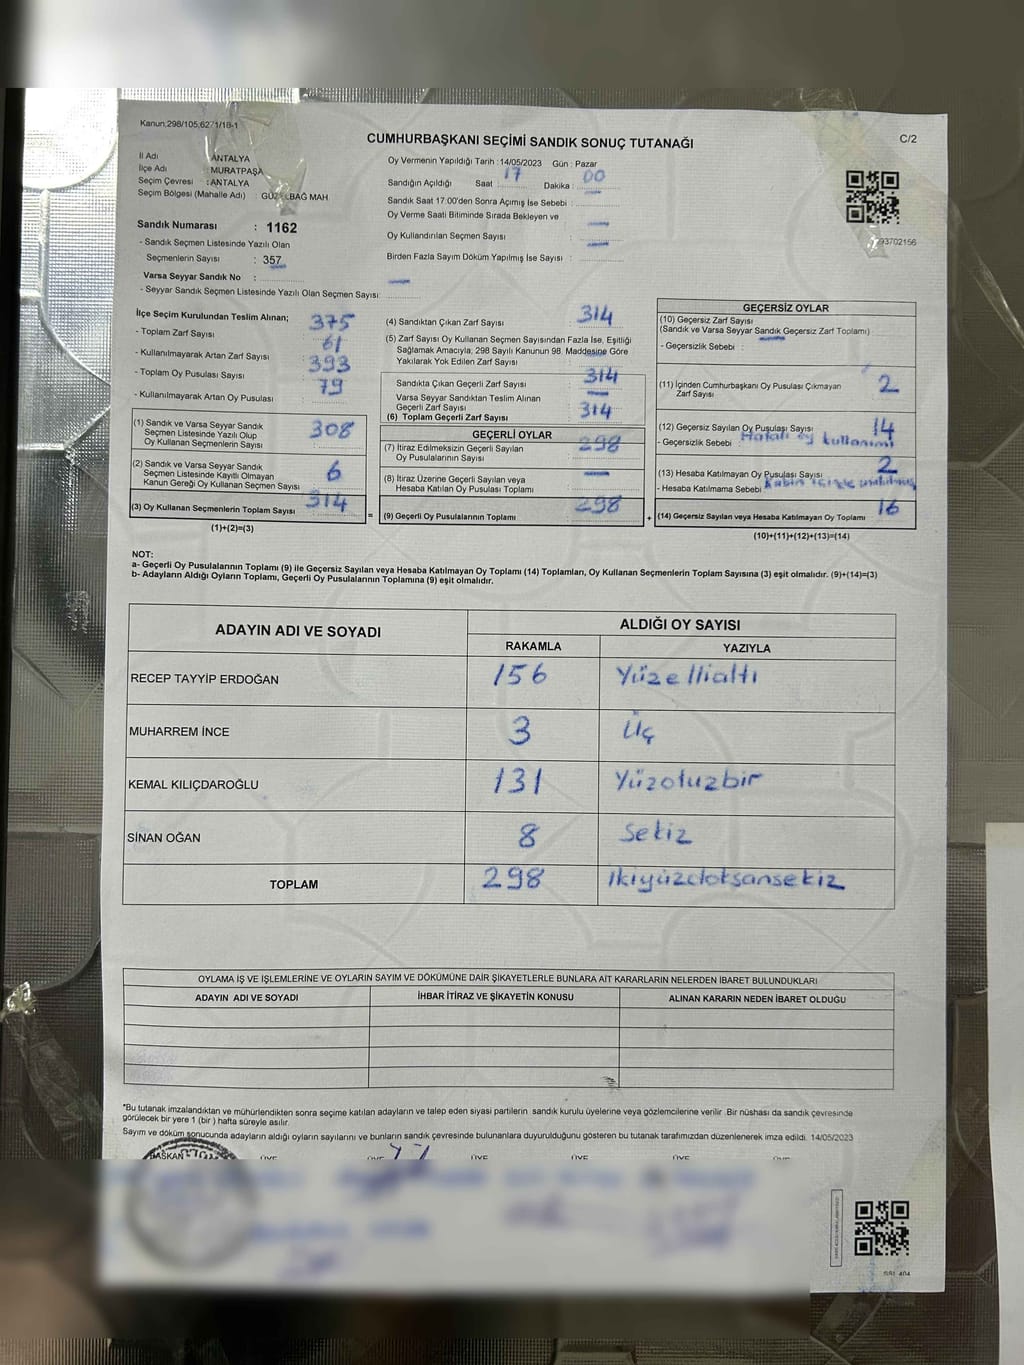 Kanun:298/105,6271/18-1
CUMHURBAŞKANI SEÇİMİ SANDIK SONUÇ TUTANAĞI
C/2
İl Adı : ANTALYA
İlçe Adı : MURATPAŞA
Seçim Çevresi : ANTALYA
Seçim Bölgesi (Mahalle Adı) : BAĞ MAH
Sandık Numarası : 1162
- Sandık Seçmen Listesinde Yazılı Olan
Seçmenlerin Sayısı : 357
Varsa Seyyar Sandık No :
- Seyyar Sandık Seçmen Listesinde Yazılı Olan Seçmen Sayısı: —
Oy Vermenin Yapıldığı Tarih : 14/05/2023 Gün : Pazar
Sandığın Açıldığı Saat : 17 Dakika : 00
Sandık Saat 17.00'den Sonra Açımış İse Sebebi : —
Oy Verme Saati Bitiminde Sırada Bekleyen ve
Oy Kullandırılan Seçmen Sayısı : —
Birden Fazla Sayım Döküm Yapılmış İse Sayısı : —
93702156
İlçe Seçim Kurulundan Teslim Alınan;
- Toplam Zarf Sayısı 375
- Kullanılmayarak Artan Zarf Sayısı 61
- Toplam Oy Pusulası Sayısı 393
- Kullanılmayarak Artan Oy Pusulası 79
(1) Sandık ve Varsa Seyyar Sandık
Seçmen Listesinde Yazılı Olup
Oy Kullanan Seçmenlerin Sayısı 308
(2) Sandık ve Varsa Seyyar Sandık
Seçmen Listesinde Kayıtlı Olmayan
Kanun Gereği Oy Kullanan Seçmen Sayısı 6
(3) Oy Kullanan Seçmenlerin Toplam Sayısı 314
(1)+(2)=(3)
(4) Sandıktan Çıkan Zarf Sayısı : 314
(5) Zarf Sayısı Oy Kullanan Seçmen Sayısından Fazla İse, Eşitliği
Sağlamak Amacıyla, 298 Sayılı Kanunun 98. Maddesine Göre
Yakılarak Yok Edilen Zarf Sayısı : —
Sandıkta Çıkan Geçerli Zarf Sayısı : 314
Varsa Seyyar Sandıktan Teslim Alınan
Geçerli Zarf Sayısı : —
(6) Toplam Geçerli Zarf Sayısı : 314
GEÇERLİ OYLAR
(7) İtiraz Edilmeksizin Geçerli Sayılan
Oy Pusulalarının Sayısı : 298
(8) İtiraz Üzerine Geçerli Sayılan veya
Hesaba Katılan Oy Pusulası Toplamı : —
= (9) Geçerli Oy Pusulalarının Toplamı : 298
GEÇERSİZ OYLAR
(10) Geçersiz Zarf Sayısı
(Sandık ve Varsa Seyyar Sandık Geçersiz Zarf Toplamı)
- Geçersizlik Sebebi : —
(11) İçinden Cumhurbaşkanı Oy Pusulası Çıkmayan
Zarf Sayısı : 2
(12) Geçersiz Sayılan Oy Pusulası Sayısı : 14
- Geçersizlik Sebebi : Hatalı oy kullanımı
(13) Hesaba Katılmayan Oy Pusulası Sayısı : 2
- Hesaba Katılmama Sebebi : Kabin içinde unutulmuş
+ (14) Geçersiz Sayılan veya Hesaba Katılmayan Oy Toplamı : 16
(10)+(11)+(12)+(13)=(14)
NOT:
a- Geçerli Oy Pusulalarının Toplamı (9) ile Geçersiz Sayılan veya Hesaba Katılmayan Oy Toplamı (14) Toplamları, Oy Kullanan Seçmenlerin Toplam Sayısına (3) eşit olmalıdır. (9)+(14)=(3)
b- Adayların Aldığı Oyların Toplamı, Geçerli Oy Pusulalarının Toplamına (9) eşit olmalıdır.
ADAYIN ADI VE SOYADI ALDIĞI OY SAYISI
RAKAMLA YAZIYLA
RECEP TAYYİP ERDOĞAN 156 Yüzellialtı
MUHARREM İNCE 3 Üç
KEMAL KILIÇDAROĞLU 131 Yüzotuzbir
SİNAN OĞAN 8 Sekiz
TOPLAM 298 ikiyüzdoksansekiz
OYLAMA İŞ VE İŞLEMLERİNE VE OYLARIN SAYIM VE DÖKÜMÜNE DAİR ŞİKAYETLERLE BUNLARA AİT KARARLARIN NELERDEN İBARET BULUNDUKLARI
ADAYIN ADI VE SOYADI İHBAR İTİRAZ VE ŞİKAYETİN KONUSU ALINAN KARARIN NEDEN İBARET OLDUĞU
*Bu tutanak imzalandıktan ve mühürlendikten sonra seçime katılan adayların ve talep eden siyasi partilerin sandık kurulu üyelerine veya gözlemcilerine verilir .Bir nüshası da sandık çevresinde
görülecek bir yere 1 (bir ) hafta süreyle asılır.
Sayım ve döküm sonucunda adayların aldığı oyların sayılarını ve bunların sandık çevresinde bulunanlara duyurulduğunu gösteren bu tutanak tarafımızdan düzenlenerek imza edildi. 14/05/2023
BAŞKAN ÜYE ÜYE ÜYE ÜYE ÜYE ÜYE